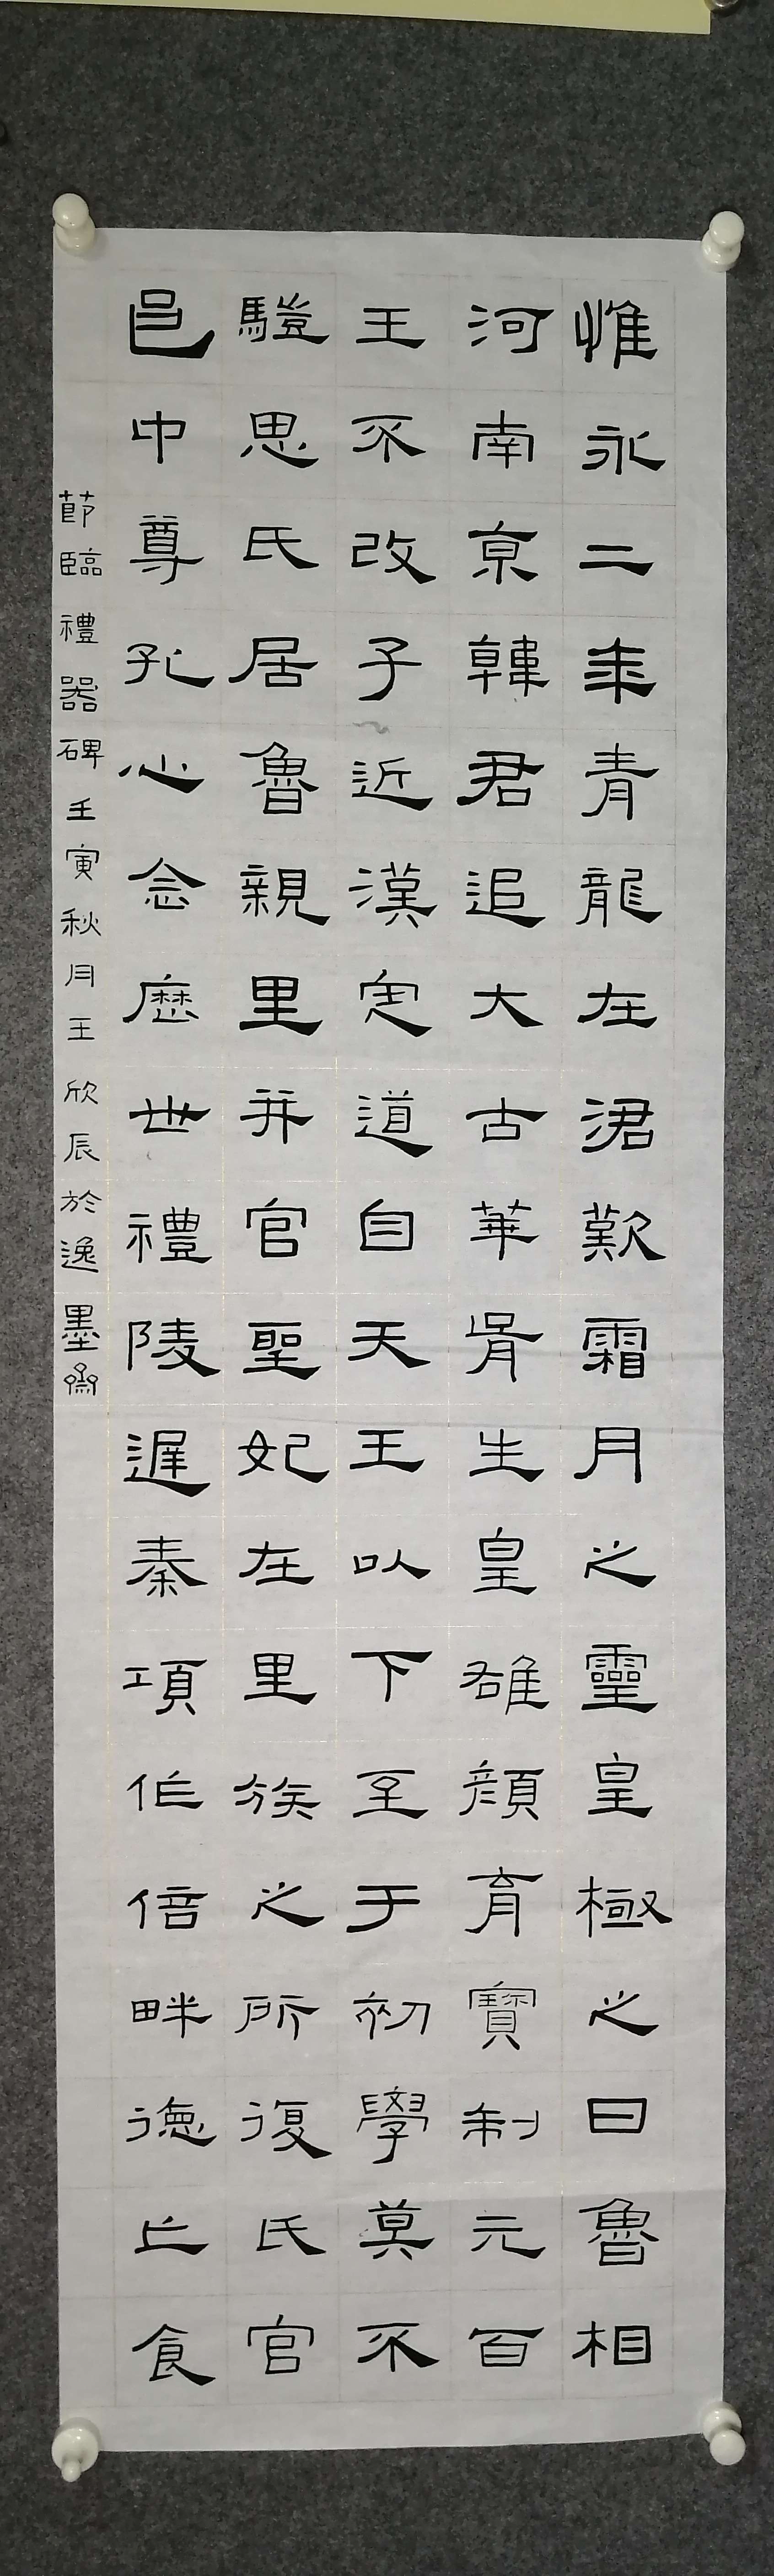 惟永二年青龍在涒歎霜月之靈皇極之日魯相
河南京韓君追大古華胥生皇雄顏育寶制元百
王不改孔子近漢定道自天王以下至于初學莫不
驡思氏居魯親里并官聖妃在里族之所復氏官
邑中尊孔心念歷世禮陵遲秦項作倍畔德亡食
節臨禮器碑壬寅秋月王欣辰於逸墨齋